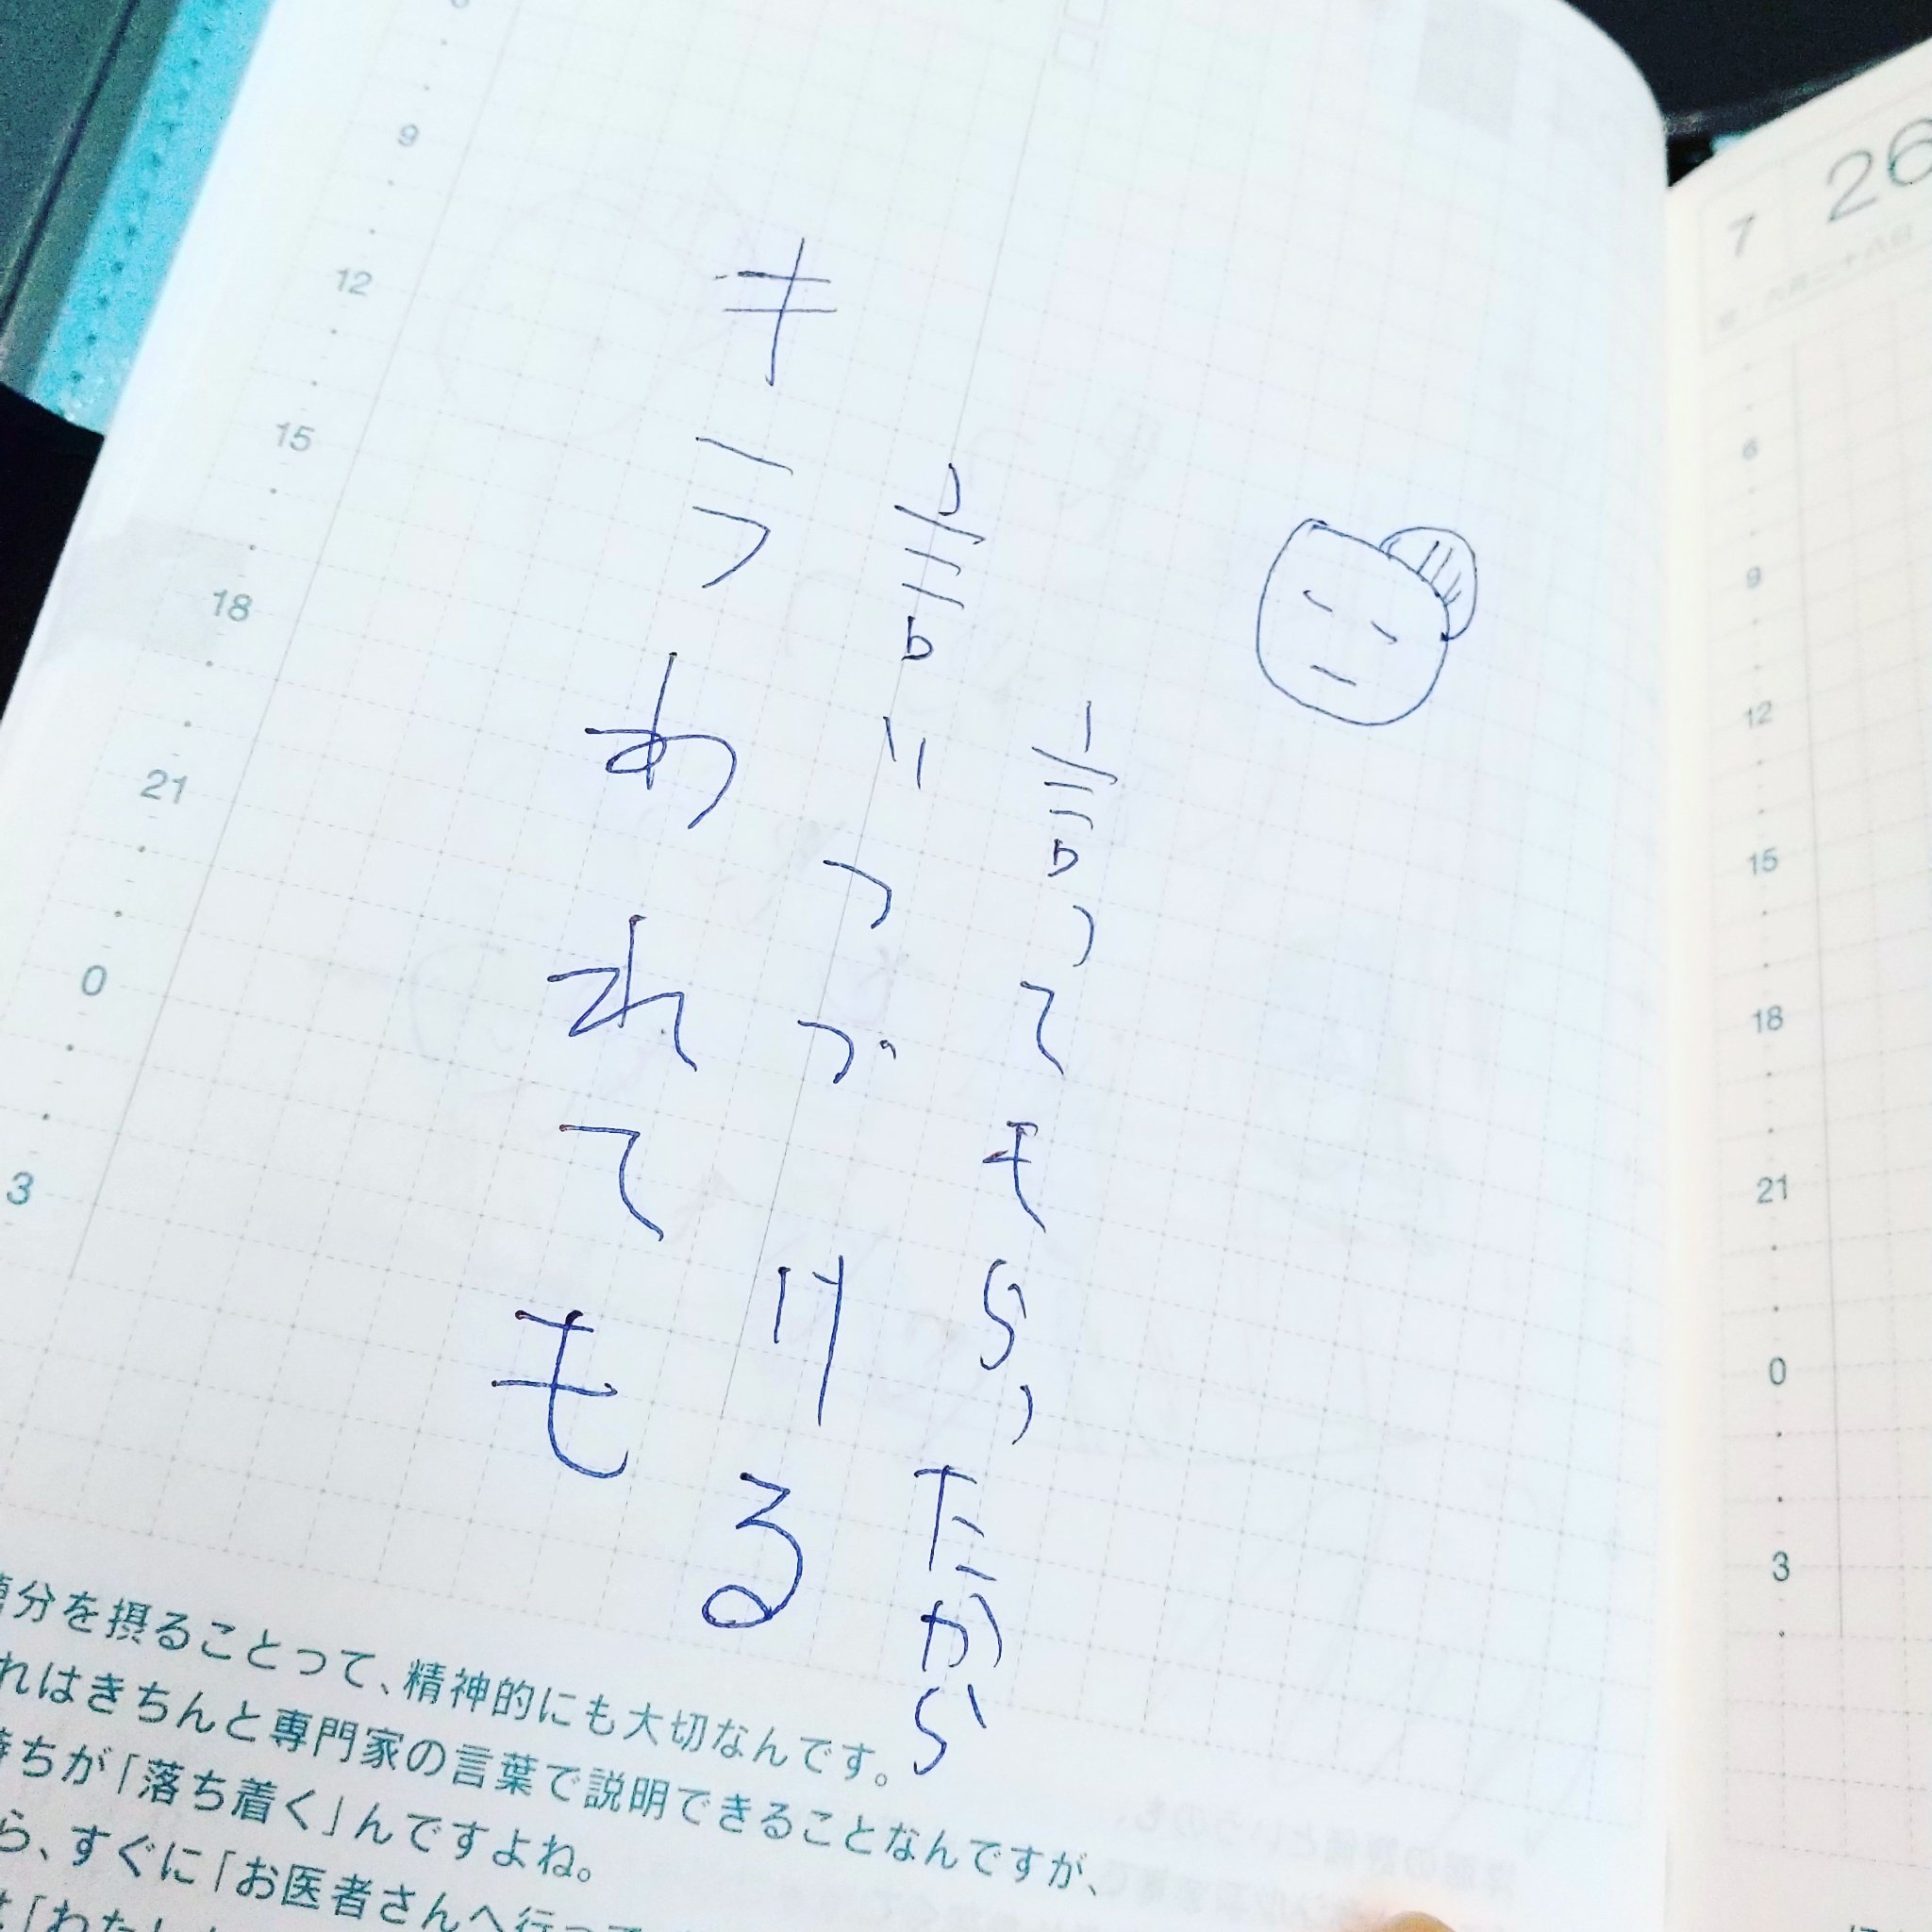 言ってもらったから
言いつづける
キラわれても
9
12
15
18
21
0
3
分を摂ることって、精神的にも大切なんです。
れはきちんと専門家の言葉で説明できることなんですが、
ちが「落ち着く」んですよね。
ら、すぐに「お医者さんへ行って
「わたし
7 26
6
9
12
15
18
21
0
3